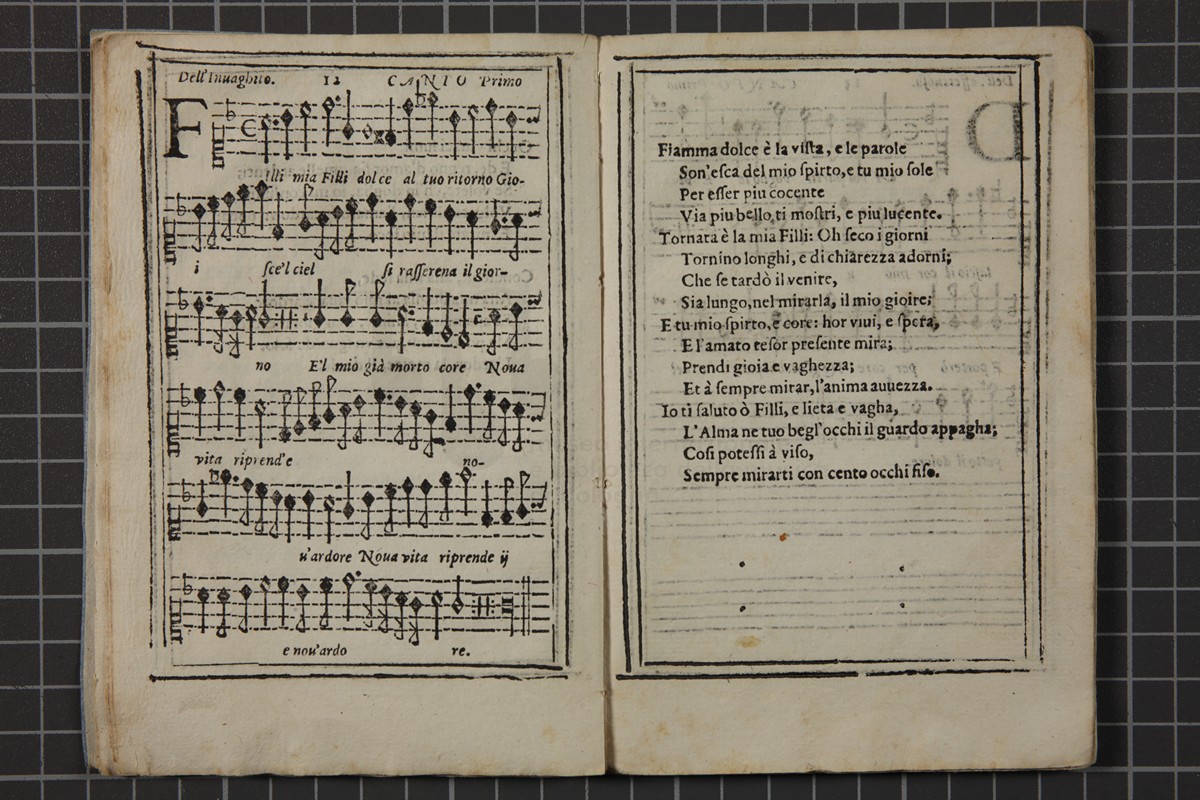 Dell'Inuaghito. 12 CANTO Primo
F
illi mia Filli dolce al tuo ritorno Gio-
i sce'l ciel si rasserena il gior-
no E'l mio già morto core Noua
vita riprend'e no-
u'ardore Noua vita riprende ij
e nou'ardo re.
Fiamma dolce è la vista, e le parole
Son'esca del mio spirto, e tu mio sole
Per esser piu cocente
Via piu bello, ti mostri, e piu lucente.
Tornata è la mia Filli: Oh seco i giorni
Tornino longhi, e di chiarezza adorni;
Che se tardò il venire,
Sia lungo, nel mirarla, il mio gioire;
E tu mio spirto, e core: hor viui, e spera,
E l'amato tesor presente mira;
Prendi gioia e vaghezza;
Et à sempre mirar, l'anima auuezza.
Io ti saluto ò Filli, e lieta e vagha,
L'Alma ne tuo begl'occhi il guardo appagha;
Cosi potessi à viso,
Sempre mirarti con cento occhi fiso.